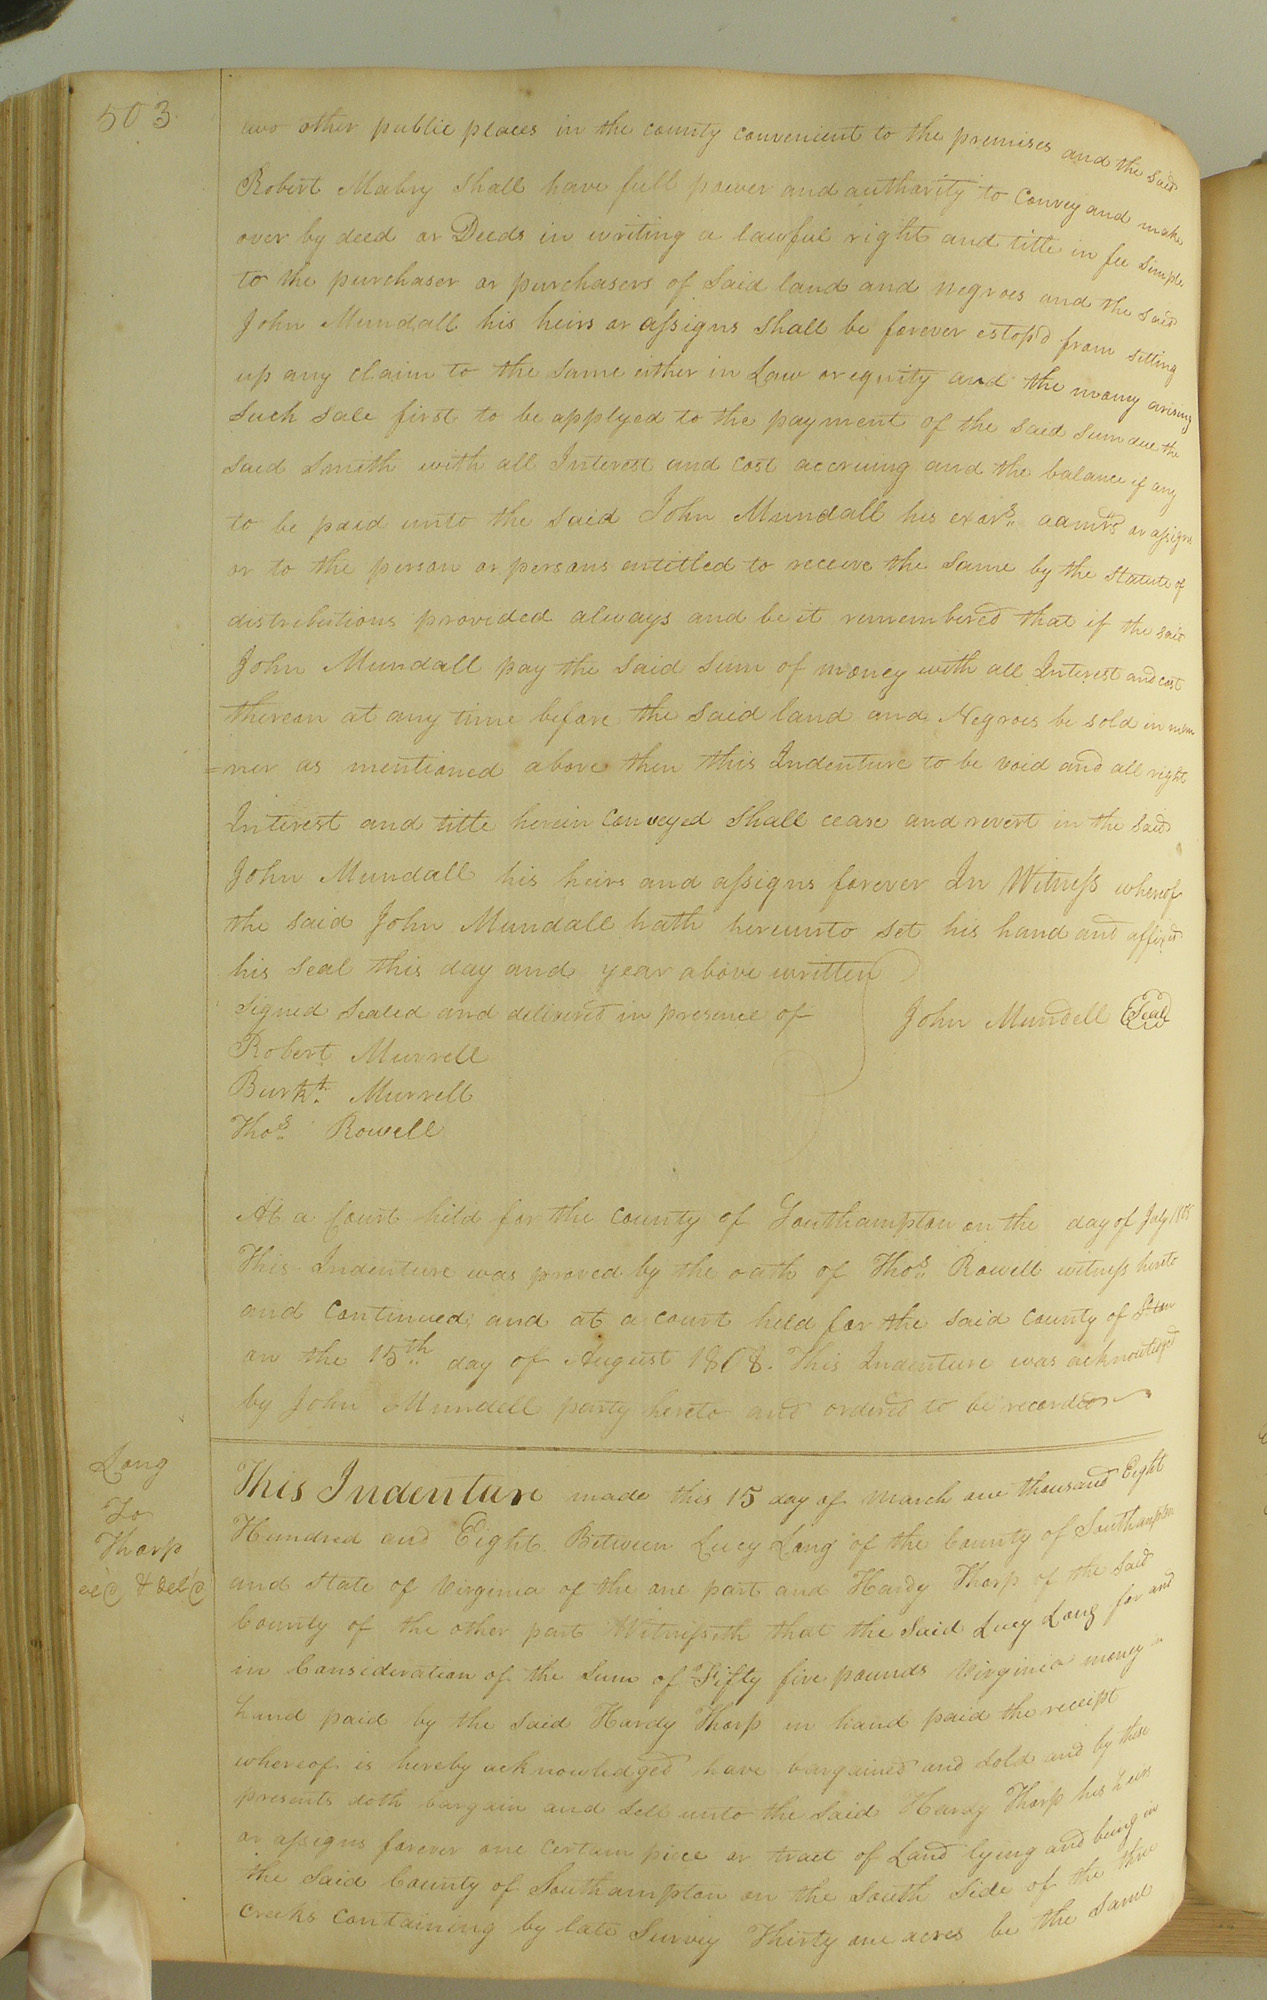 503
two other public places in the county convenient to the premises and the said
Robert Mabry shall have full power and authority to Convey and make
over by deed or Deeds in writing a lawful right and title in fee simple
to the purchaser or purchasers of said land and negroes and the said
John Mundall his heirs or assigns shall be forever estop'd from setting
up any claim to the same either in Law or equity and the mony arising
such sale first to be applyed to the payment of the said sum due the
said Smith with all Interest and cost accruing and the balance if any
to be paid unto the said John Mundall his exors. admrs or assigns
or to the person or persons entitled to receive the same by the statute of
distributions provided always and be it remembered that if the said
John Mundall pay the said sum of money with all Interest and cost
thereon at any time before the said land and Negroes be sold in man
=ner as mentioned above then this Indenture to be void and all right
Interest and title herein conveyed shall cease and revert in the said
John Mundall his heirs and assigns forever In Witness whereof
the said John Mundall hath hereunto set his hand and affixed
his seal this day and year above written
signed sealed and delivered in presence of
John Mundell Seal
Robert Murrell
Burkt. Murrell
Thos. Rowell
At a Court held for the county of Southampton on the day of July
This Indenture was proved by the oath of Thos. Rowell witness hereto
and continued; and at a court held for the said county of Ston
on the 15th. day of August 1808. This Indenture was acknowledged
by John Mundell party hereto and ordered to be recorded
Long
To
Tharp
ex'd & del'd
This Indenture made this 15 day of March one thousand Eight
Hundred and Eight Between Lucy Long of the County of Southampton
and State of Virginia of the one part and Hardy Tharp of the said
County of the other part Witnesseth that the said Lucy Long for and
in Consideration of the Sum of Fifty five pounds Virginia money in
hand paid by the said Hardy Tharp in hand paid the receipt
whereof is hereby acknowledged have bargained and sold and by these
presents doth bargain and sell unto the said Hardy Tharp his heirs
or assigns forever one certain piece or tract of Land lying and being in
the said County of Southampton on the South side of the three
creeks containing by late Survey Thirty one acres be the same